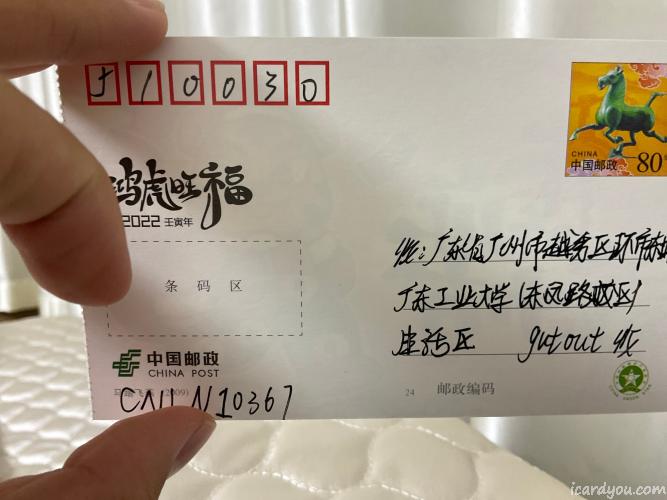 510030
CHINA
中国邮政 80
鸿虎旺福
2022 壬寅年
条码区
广东省广州市越秀区环市东
广东工业大学(东风路校区)
生活区 gutout 收
中国邮政
CHINA POST
(2009)
N10367
24 邮政编码
icardyou.com